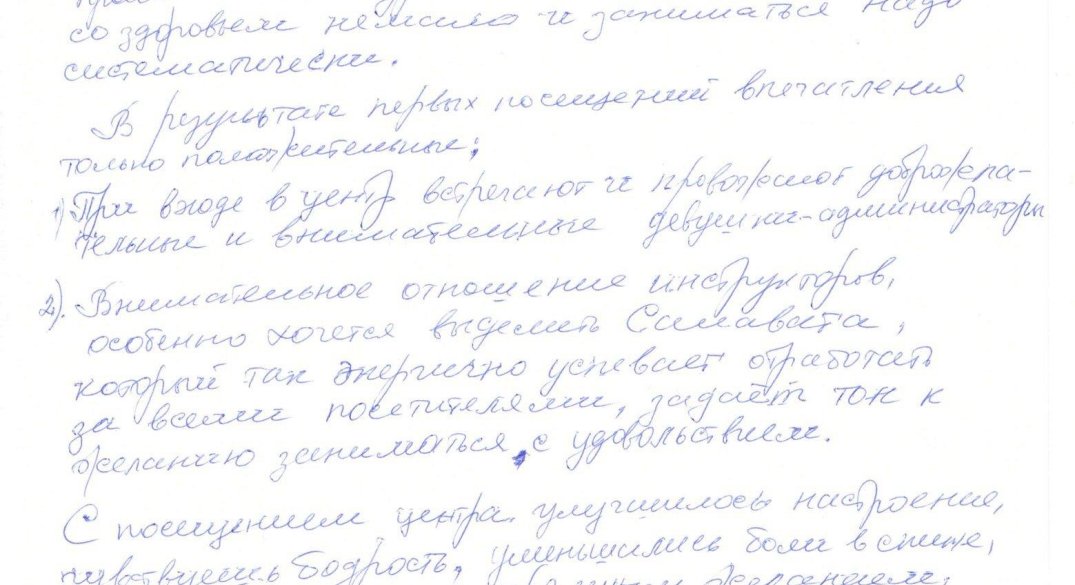 со здоровьем немало и заниматься надо
систематически.
В результате первых посещений впечатления
только положительные:
1) При входе в центр встречают и провожают доброжела-
тельные и внимательные девушки-администраторы
2). Внимательное отношение инструкторов,
особенно хочется выделить Самавата,
который так энергично успевает отработать
за всеми посетителями, задаёт тон к
желанию заниматься с удовольствием.
С посещением центра улучшилось настроение,
чувствуешь бодрость, уменьшились боли в спине,